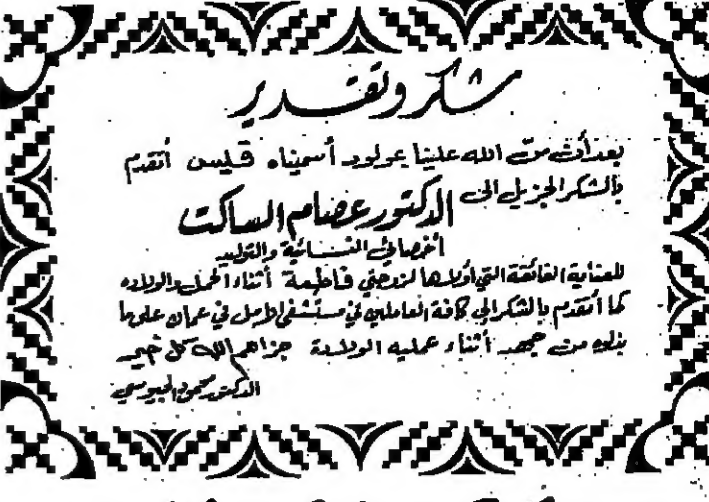 شكر وتقدير
بعد أن منّ الله علينا بمولود أسميناه قيس أتقدم
بالشكر الجزيل الى الدكتور عصام الساكت
أخصائي النسائية والتوليد
للعناية الفائقة التي أولاها لزوجتي فاطمة أثناء الحمل والولاده
كما أتقدم بالشكر الى كافة العاملين في مستشفى الامل في عمان على ما
بذلوه من جهد أثناء عمليه الولادة جزاهم الله كل خير
الدكتور محمود